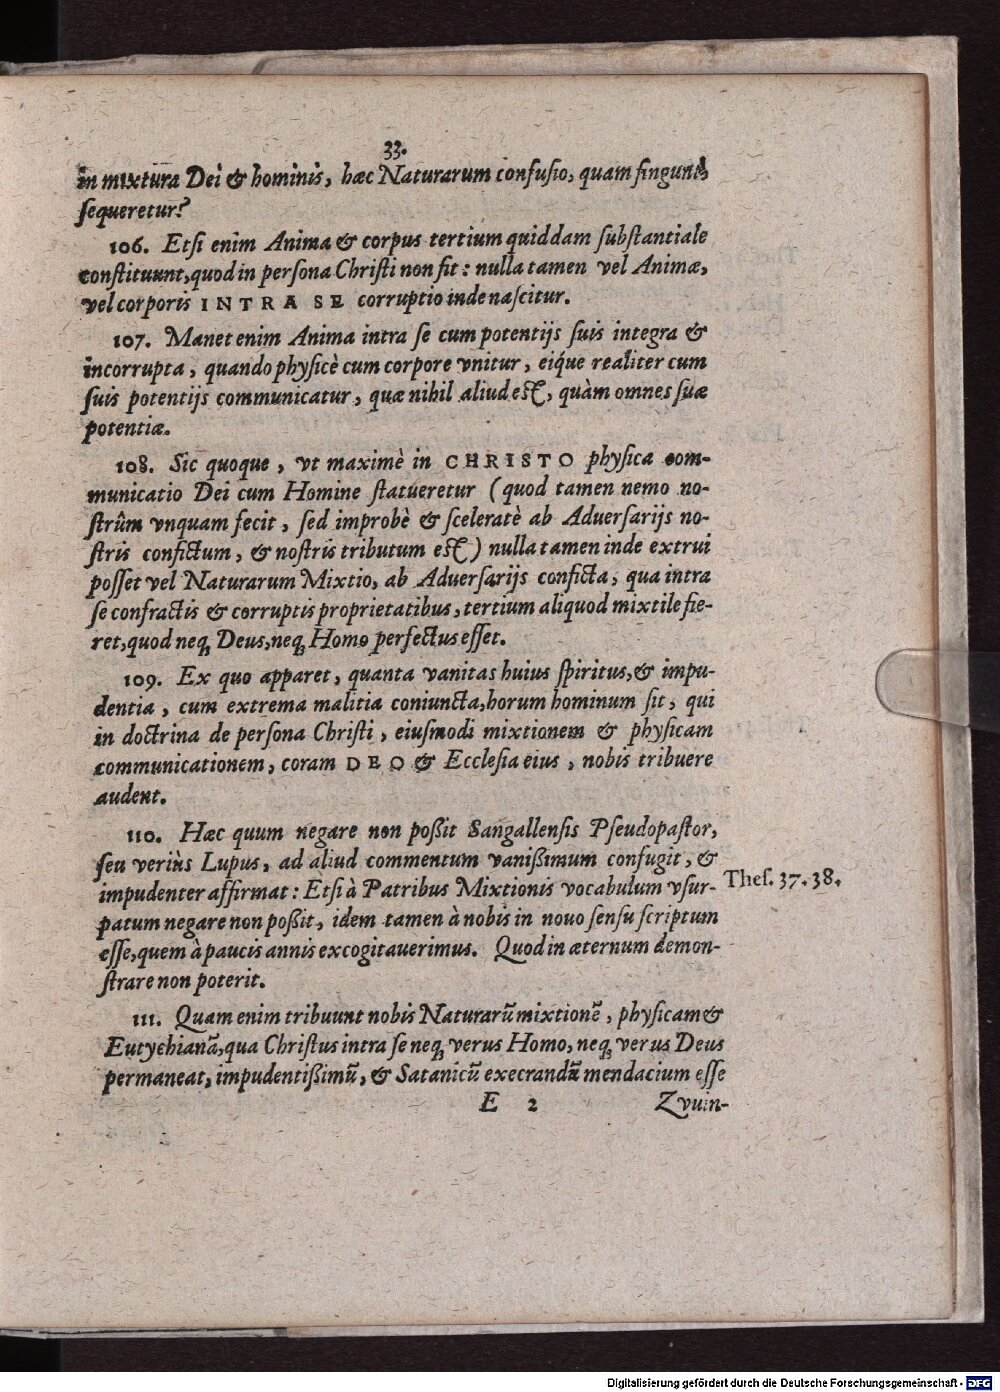 33.
in mixtura Dei & hominis, hæc Naturarum confusio, quam fingunt,
sequeretur?
106. Etsi enim Anima & corpus tertium quiddam substantiale
constituunt, quod in persona Christi non fit: nulla tamen vel Animæ,
vel corporis INTRA SE corruptio inde nascitur.
107. Manet enim Anima intra se cum potentijs suis integra &
incorrupta, quando physicè cum corpore vnitur, eiq́ue realiter cum
suis potentijs communicatur, quæ nihil aliud est, quàm omnes suæ
potentiæ.
108. Sic quoque, vt maximè in CHRISTO physica com-
municatio Dei cum Homine statueretur (quod tamen nemo no-
strûm vnquam fecit, sed improbè & sceleratè ab Aduersarijs no-
stris confictum, & nostris tributum est) nulla tamen inde extrui
posset vel Naturarum Mixtio, ab Aduersarijs conficta, qua intra
se confractis & corruptis proprietatibus, tertium aliquod mixtile fie-
ret, quod neq; Deus, neq; Homo perfectus esset.
109. Ex quo apparet, quanta vanitas huius spiritus, & impu-
dentia, cum extrema malitia coniuncta, horum hominum sit, qui
in doctrina de persona Christi, eiusmodi mixtionem & physicam
communicationem, coram DEO & Ecclesia eius, nobis tribuere
audent.
110. Hæc quum negare non poßit Sangallensis Pseudopastor,
seu veriùs Lupus, ad aliud commentum vanißimum confugit, &
impudenter affirmat: Etsi à Patribus Mixtionis vocabulum vsur-
Thes. 37. 38.
patum negare non poßit, idem tamen à nobis in nouo sensu scriptum
esse, quem à paucis annis excogitauerimus. Quod in æternum demon-
strare non poterit.
111. Quam enim tribuunt nobis Naturarũ mixtionẽ, physicam &
Eutychianã, qua Christus intra se neq; verus Homo, neq; verus Deus
permaneat, impudentißimũ, & Satanicũ execrandũ mendacium esse
E 2 Zvuin-
Digitalisierung gefördert durch die Deutsche Forschungsgemeinschaft - DFG